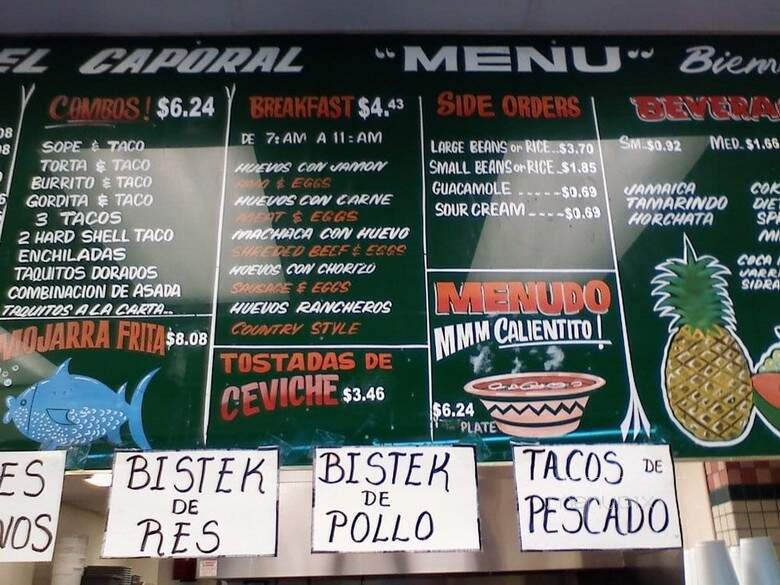 EL CAPORAL "MENU" Bien
COMBOS! $6.24
SOPE & TACO
TORTA & TACO
BURRITO & TACO
GORDITA & TACO
3 TACOS
2 HARD SHELL TACO
ENCHILADAS
TAQUITOS DORADOS
COMBINACION DE ASADA
TAQUITOS A LA CARTA..
MOJARRA FRITA $8.08
BREAKFAST $4.43
DE 7:AM A 11:AM
HUEVOS CON JAMON
HAM & EGGS
HUEVOS CON CARNE
MEAT & EGGS
MACHACA CON HUEVO
SHREDED BEEF & EGGS
HUEVOS CON CHORIZO
SAUSAGE & EGGS
HUEVOS RANCHEROS
COUNTRY STYLE
TOSTADAS DE
CEVICHE $3.46
SIDE ORDERS
LARGE BEANS or RICE..$3.70
SMALL BEANS or RICE..$1.85
GUACAMOLE -----$0.69
SOUR CREAM -----$0.69
MENUDO
MMM CALIENTITO!
$6.24
PLATE
BEVERA
SM..$0.92 MED. $1.66
JAMAICA
TAMARINDO
HORCHATA
COCA
SIDRA
ES
NOS
BISTEK
DE
RES
BISTEK
DE
POLLO
TACOS DE
PESCADO